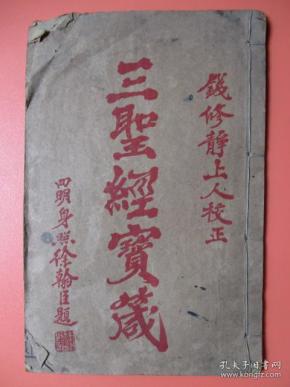 錢修靜上人校正
三聖經寶藏
四明身照徐翰臣題
孔夫子旧书网